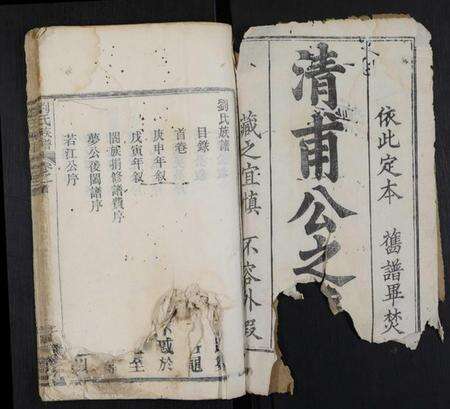 依此定本 舊譜畢焚
清甫公之
藏之宜慎 不容外假
劉氏族譜
目錄
首卷
庚申年叙
戊寅年叙
闔族捐修譜費序
夢公後圖譜序
若江公序
於
至
劉氏族譜